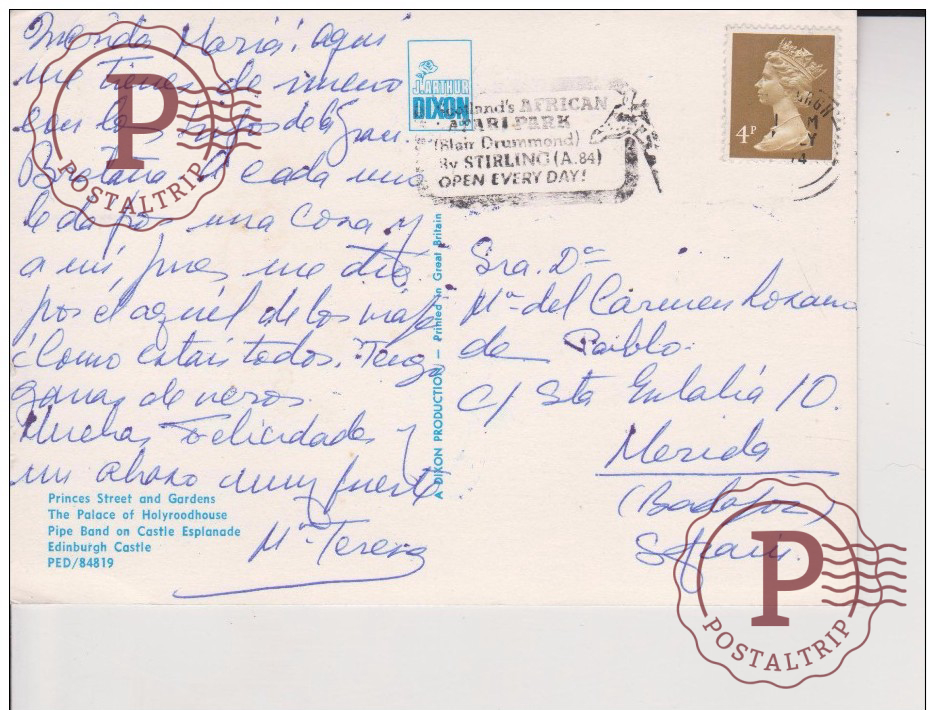 Querida Maria: aqui
me tienes de nuevo
con los de la Gran
Bretaña. A cada uno
le da por una cosa y
a mi, pues me dio
por el aquél de los viajes
¿Como estais todos. Tengo
ganas de veros.
Muchas Felicidades y
un abrazo muy fuerte
Mª Teresa
Princes Street and Gardens
The Palace of Holyroodhouse
Pipe Band on Castle Esplanade
Edinburgh Castle
PED/84819
J. ARTHUR
DIXON
A DIXON PRODUCTION — Printed in Great Britain
Scotland's AFRICAN
SAFARI PARK
(Blair Drummond)
By STIRLING (A.84)
OPEN EVERY DAY!
4P
Sra. Dª
Mª del Carmen Lozano
de Pablo.
C/ Sta Eulalia 10.
Merida
(Badajoz)
Spain.
P
POSTALTRIP
P
POSTALTRIP